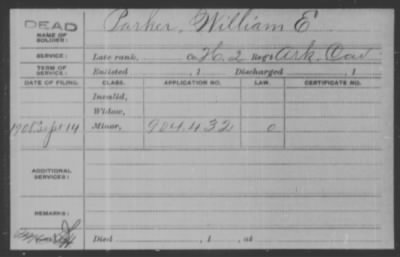 DEAD
NAME OF SOLDIER: Parker, William E
SERVICE: Late rank, Co. H, 2 Reg't Ark. Cav
TERM OF SERVICE: Enlisted , 1 Discharged , 1
DATE OF FILING. CLASS. APPLICATION NO. LAW. CERTIFICATE NO.
Invalid,
Widow,
1908 Sept 14 Minor, 904.432 0
ADDITIONAL SERVICES:
REMARKS:
Died , 1 , at